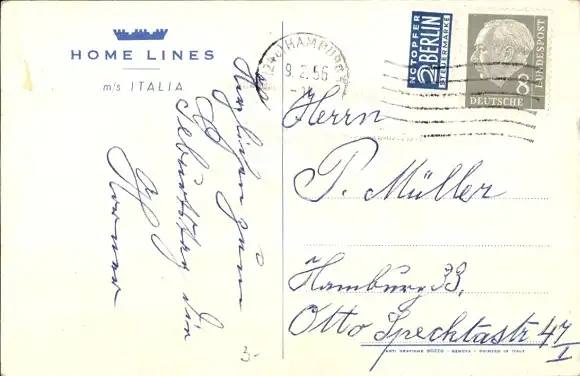 HOME LINES
m/s ITALIA
Herzlichen zum
Geburtstag
(24a) HAMBURG
9.2.56
NOTOPFER
2 BERLIN
STEUERMARKE
8
DEUTSCHE BUNDESPOST
Herrn
P. Müller
Hamburg 33,
Otto Specktastr 47
I
3-
ARTI GRAFICHE BOZZO - GENOVA - PRINTED IN ITALY